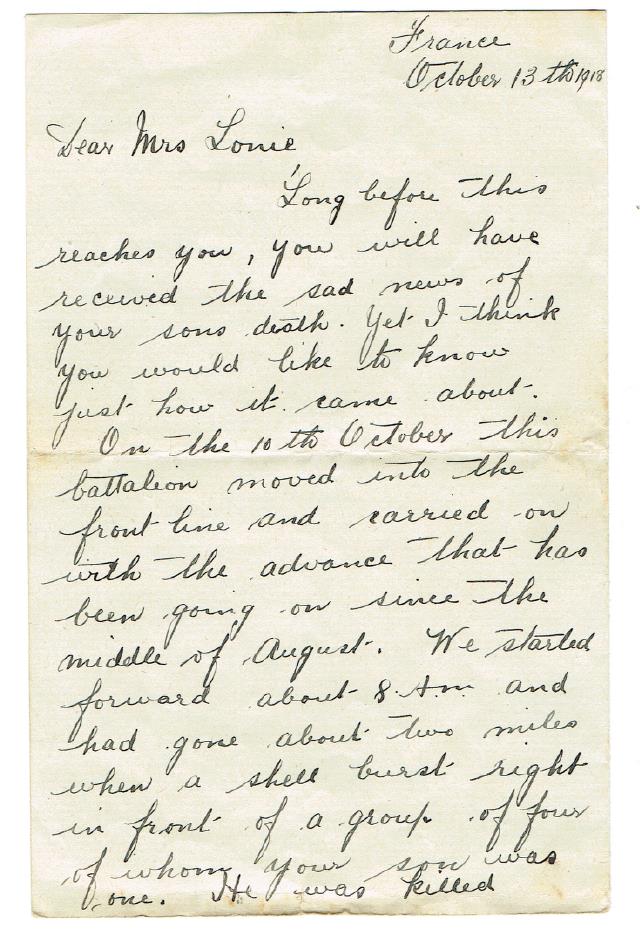 France
October 13th 1918
Dear Mrs Lonie
Long before this
reaches you, you will have
received the sad news of
your sons death. Yet I think
you would like to know
just how it came about.
On the 10th October this
battaleon moved into the
front line and carried on
with the advance that has
been going on since the
middle of August. We started
forward about 8 Am and
had gone about two miles
when a shell burst right
in front of a group of four
of whom your son was
one. He was killed